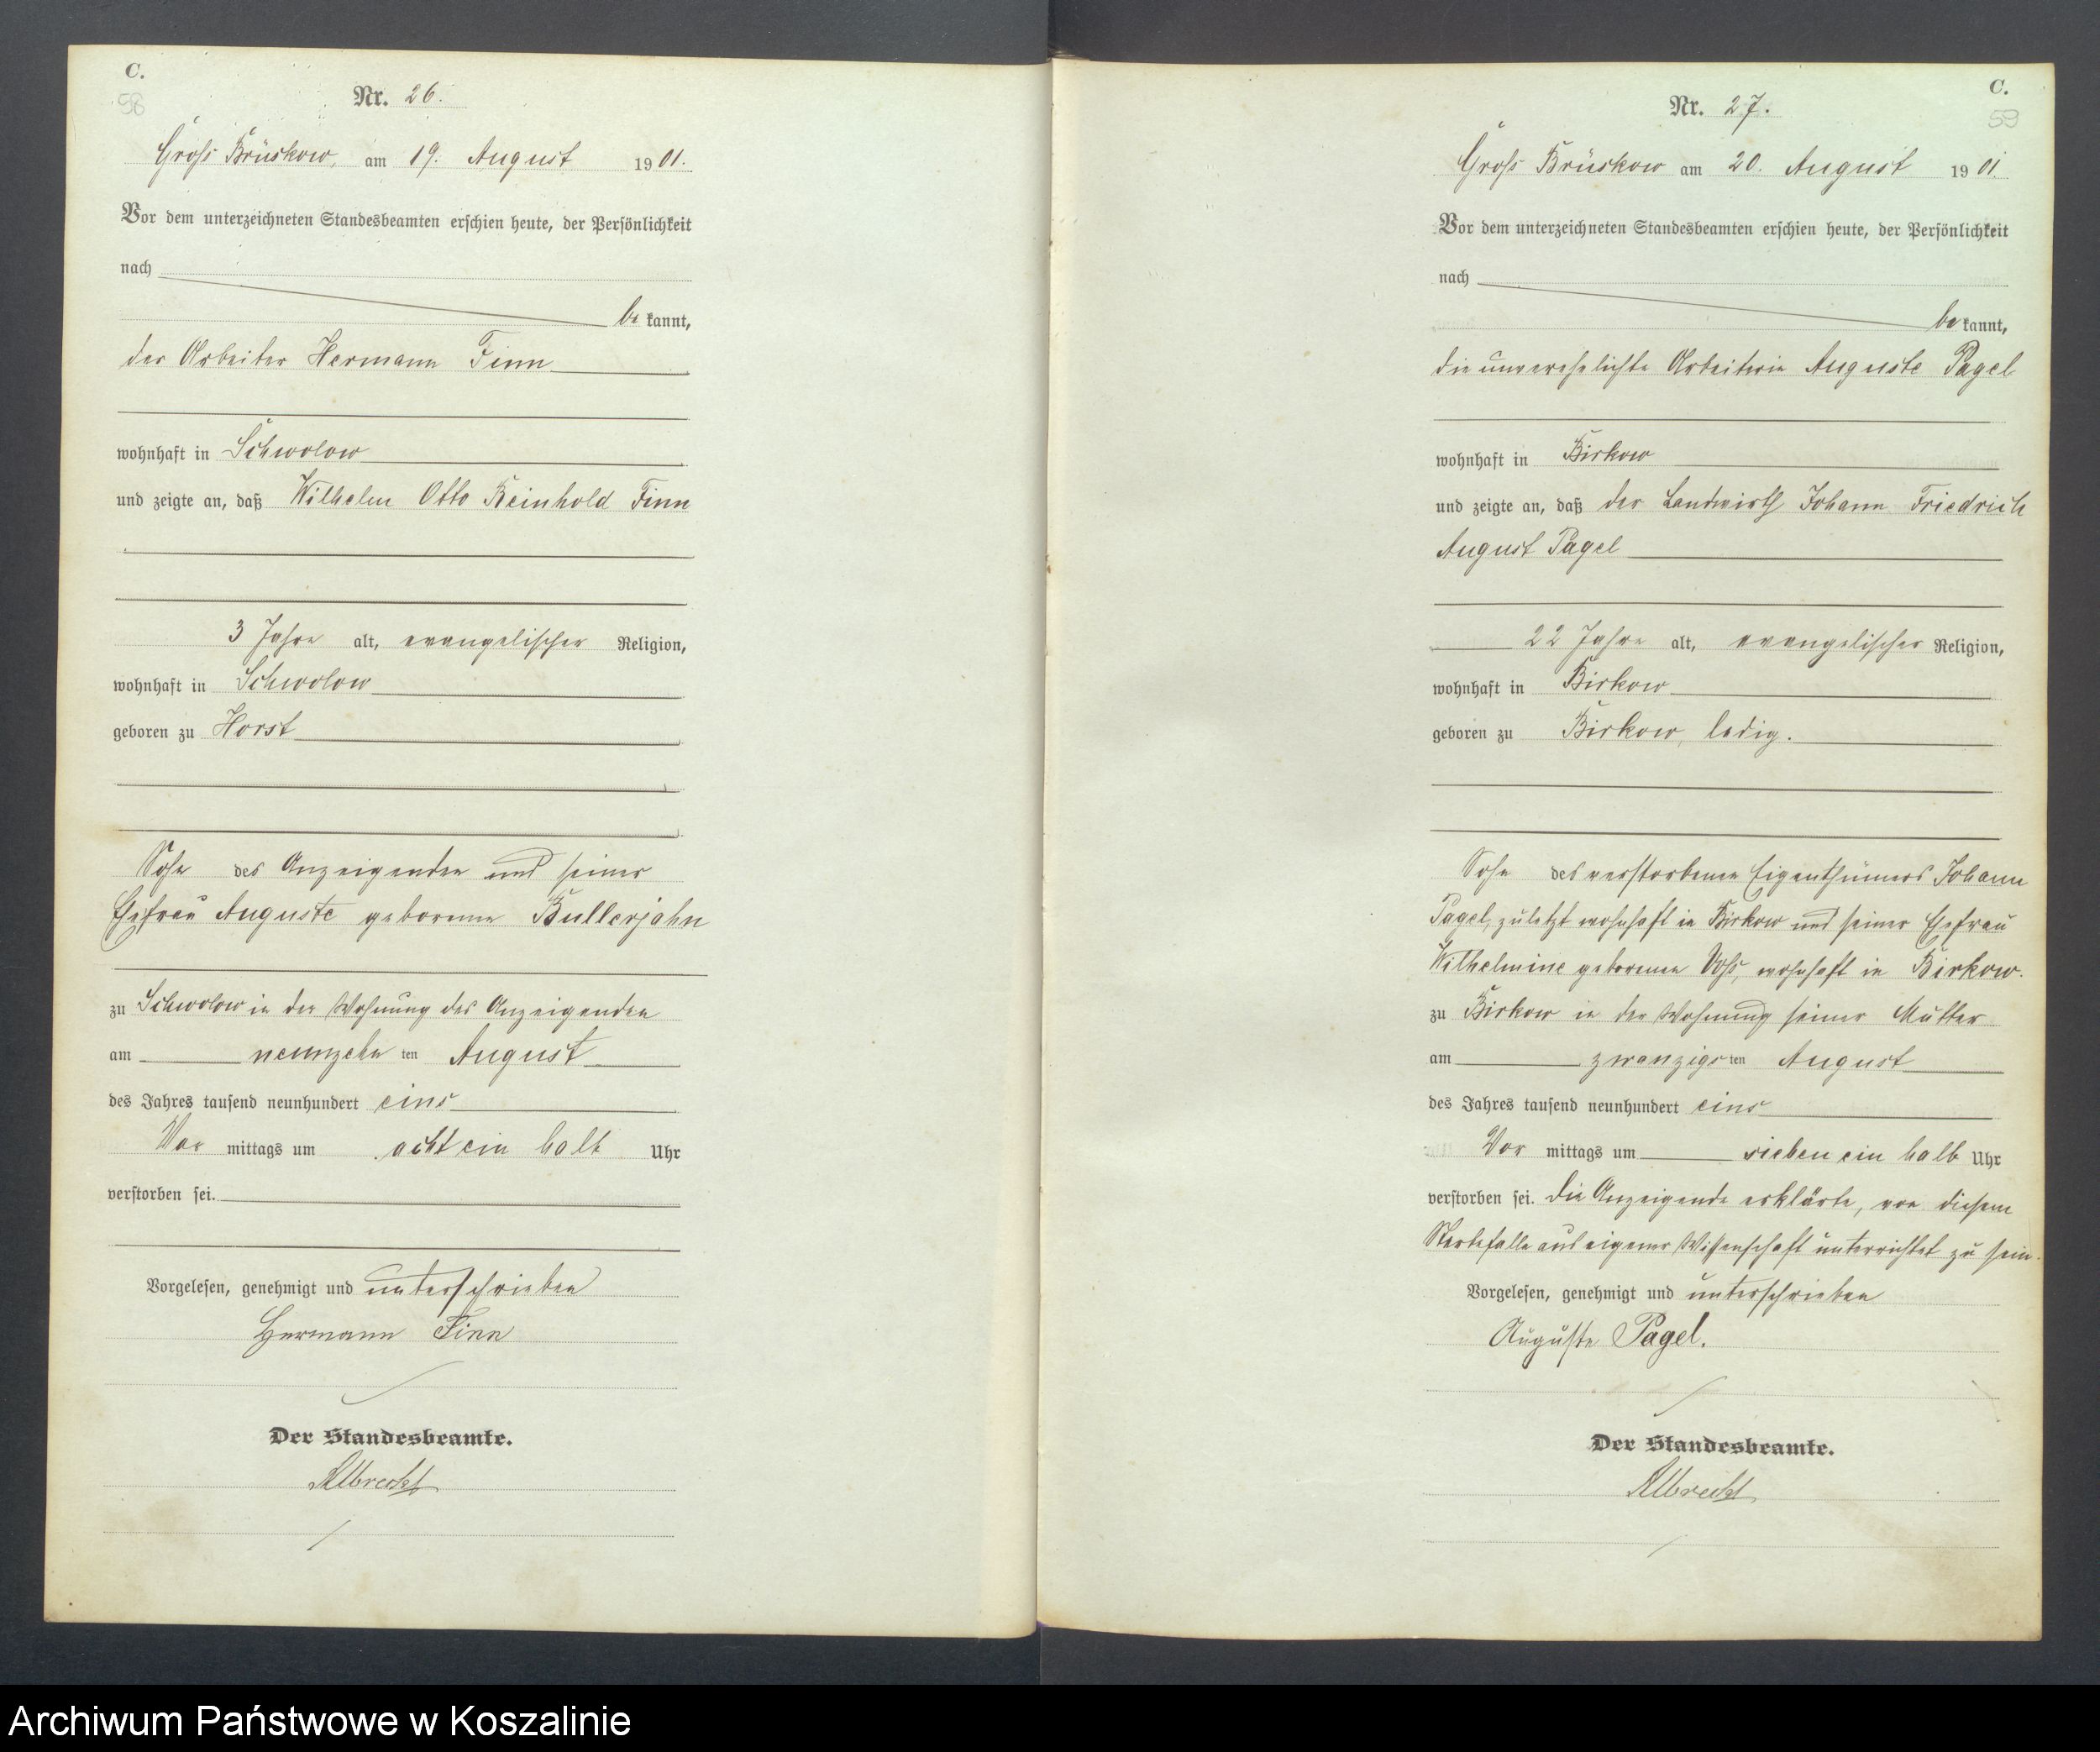 C.
58
Nr. 26.
Groß Brüskow, am 19. August 1901.
Vor dem unterzeichneten Standesbeamten erschien heute, der Persönlichkeit
nach
bekannt,
der Arbeiter Hermann Finn
wohnhaft in Schwolow
und zeigte an, daß Wilhelm Otto Reinhold Finn
3 Jahre alt, evangelischer Religion,
wohnhaft in Schwolow
geboren zu Horst
Sohn des Anzeigenden und seiner
Ehefrau Auguste geborenen Bullerjahn
zu Schwolow in der Wohnung des Anzeigenden
am neunzehnten August
des Jahres tausend neunhundert eins
Vormittags um acht ein halb Uhr
verstorben sei.
Vorgelesen, genehmigt und unterschrieben
Hermann Finn
Der Standesbeamte.
Albrecht
C.
59
Nr. 27.
Groß Brüskow am 20. August 1901.
Vor dem unterzeichneten Standesbeamten erschien heute, der Persönlichkeit
nach
bekannt,
die unverehelichte Arbeiterin Auguste Pagel
wohnhaft in Birkow
und zeigte an, daß der Landwirth Johann Friedrich
August Pagel
22 Jahre alt, evangelischer Religion,
wohnhaft in Birkow
geboren zu Birkow, ledig.
Sohn des verstorbenen Eigenthümers Johann
Pagel, zuletzt wohnhaft in Birkow und seiner Ehefrau
Wilhelmine geborenen Voß, wohnhaft in Birkow.
zu Birkow in der Wohnung seiner Mutter
am zwanzigsten August
des Jahres tausend neunhundert eins
Vormittags um sieben ein halb Uhr
verstorben sei. Die Anzeigende erklärte, von diesem
Sterbefalle aus eigener Wissenschaft unterrichtet zu sein.
Vorgelesen, genehmigt und unterschrieben
Auguste Pagel.
Der Standesbeamte.
Albrecht
Archiwum Państwowe w Koszalinie